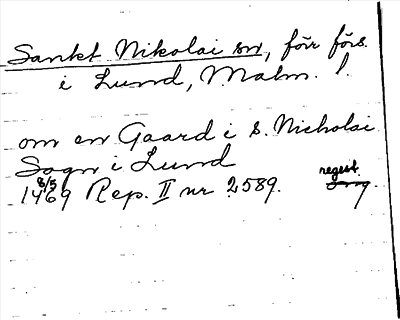 Sankt Nikolai sn, förr förs.
i Lund, Malm. l.
om en Gaard i S. Nicholai
Sogn i Lund
8/5 regest.
1469 Rep. II nr 2589.